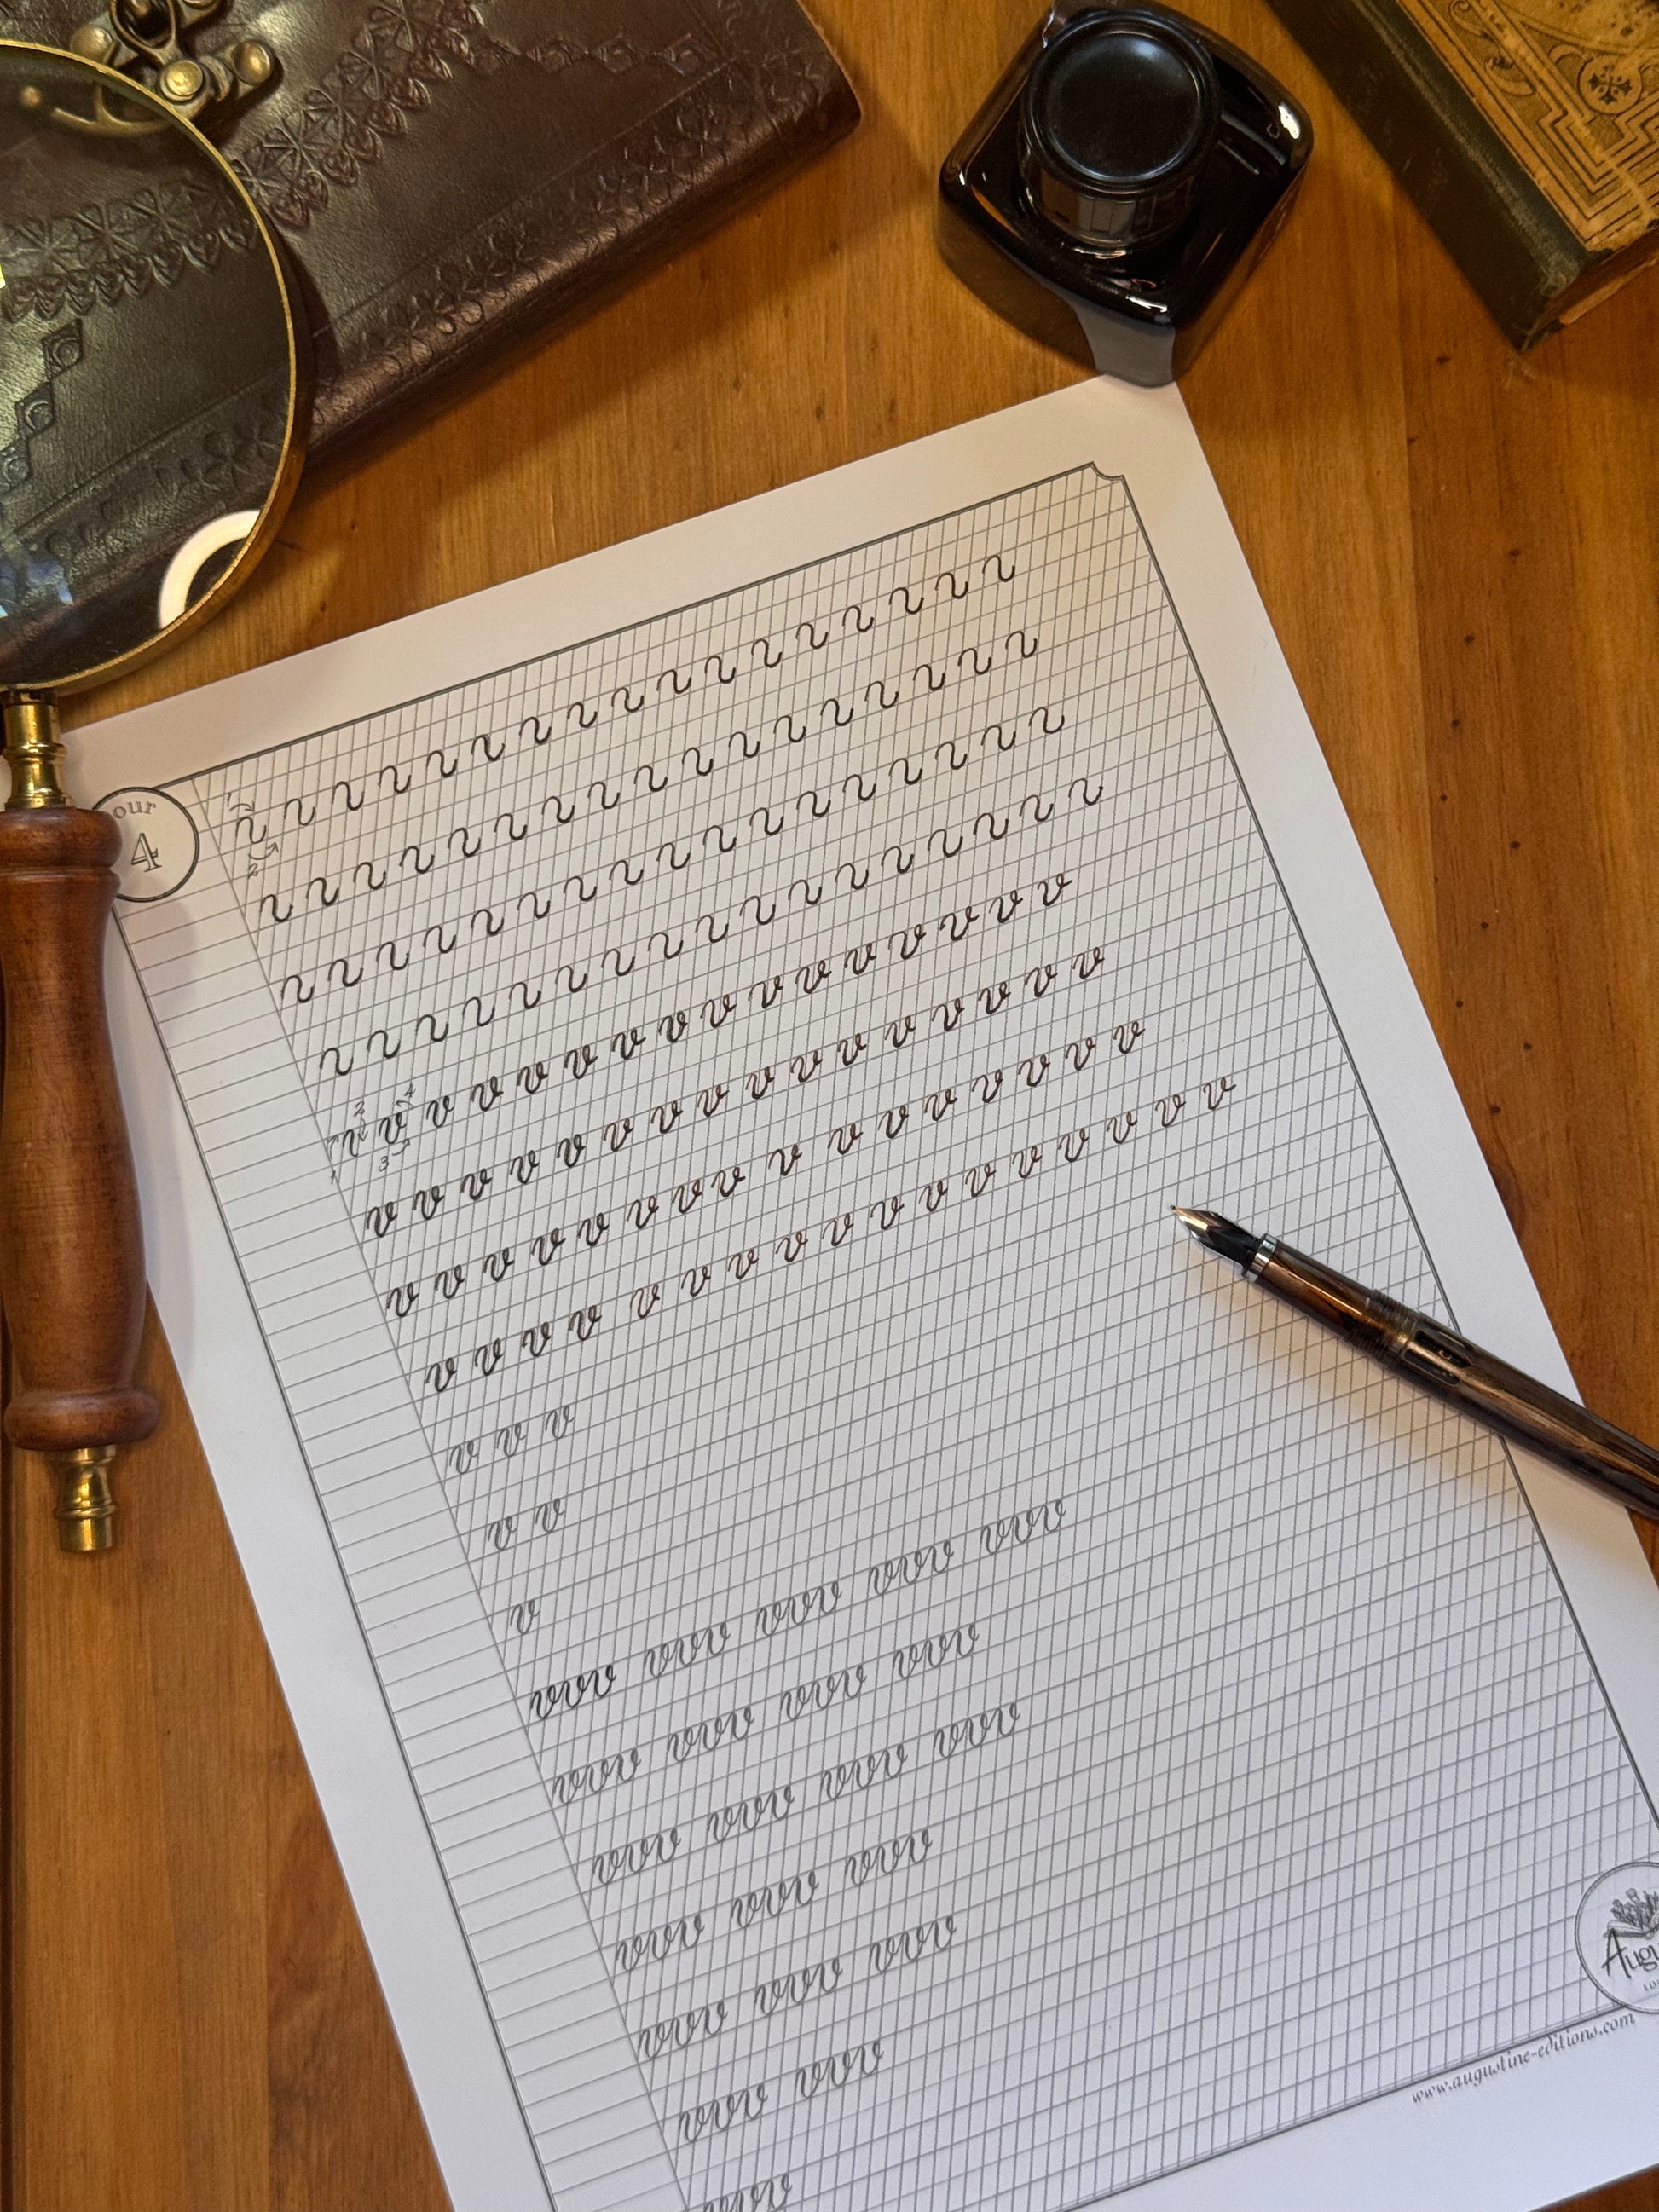 our
4
1
2
1 2 3 4
v v v v v v v v v v v v v v v
v v v v v v v v v v v v v v v v
v v v v v v v v v v v v v v v v
v v v v v v v v v v v v v v v v v
v v v
v v
v
vvv vvv vvv vvv vvv
vvv vvv vvv vvv
vvv vvv vvv vvv
vvv vvv vvv
vvv vvv vvv
vvv vvv
vvv
Aug
www.augustine-editions.com